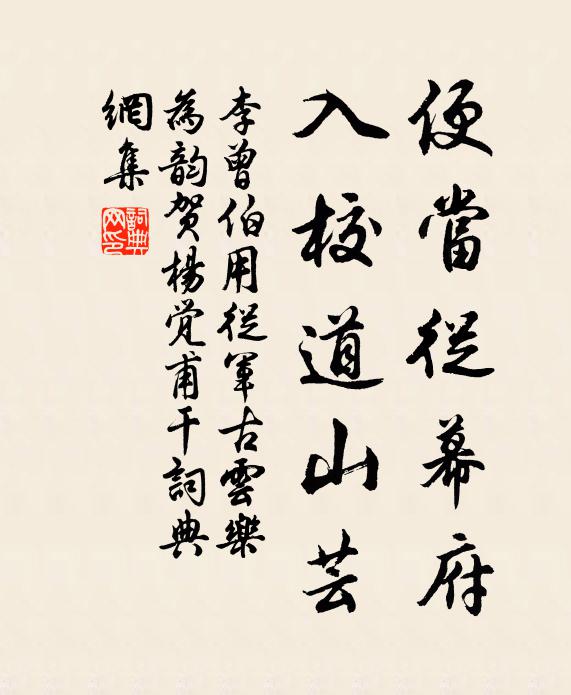 便當從幕府
入校道山芸
李曾伯用從軍古雲樂
為韵贺楊党甫干詞典
網集
詞典
网印